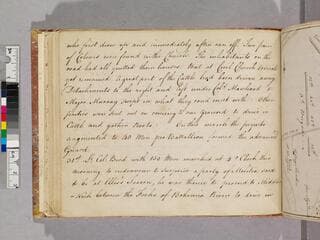 who first drew up and immediately after ran off. Two pair
of Colours were found in the Church. The inhabitants on the
road had all quitted their houses. But at Cecil Church several
got remained. A great part of the Cattle had been driven away
Detachments to the right and left under Colo. Maxhead &
Major Murray swept in what they could meet with. Other
parties were sent out on coming to our ground to drive in
Cattle and gather Boats. Orders wherein the picquets
augmented to 140 Men pr. Battallion formed the advanced
Guard.
31st. Lt. Col. Bird with 150 Men marched at 3 o'Clock this
morning to endeavour to surprise a party of Militia said
to be at Ellis's Tavern, he was thence to proceed to Middle
Neck between the Forks of Bohemia River to drive in